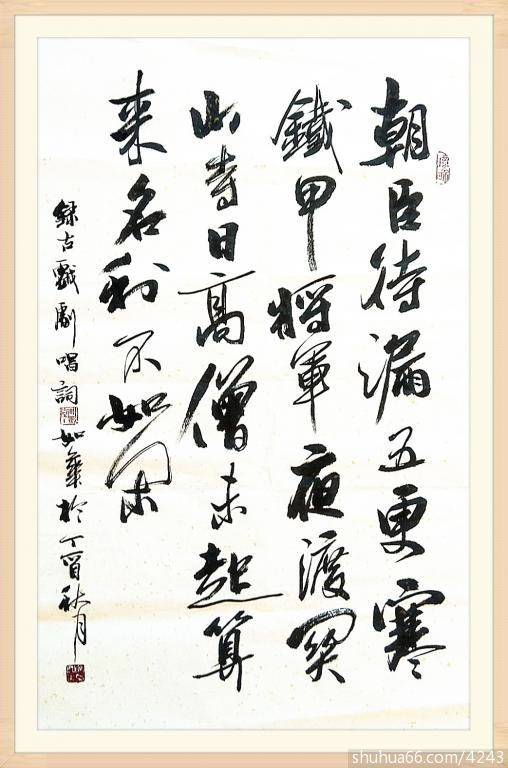 朝臣待漏五更寒
鐵甲將軍夜渡関
山寺日高僧未起算
来名利不如闲
録古戲劇唱詞
如華於丁酉秋月
shuhua66.com/4243